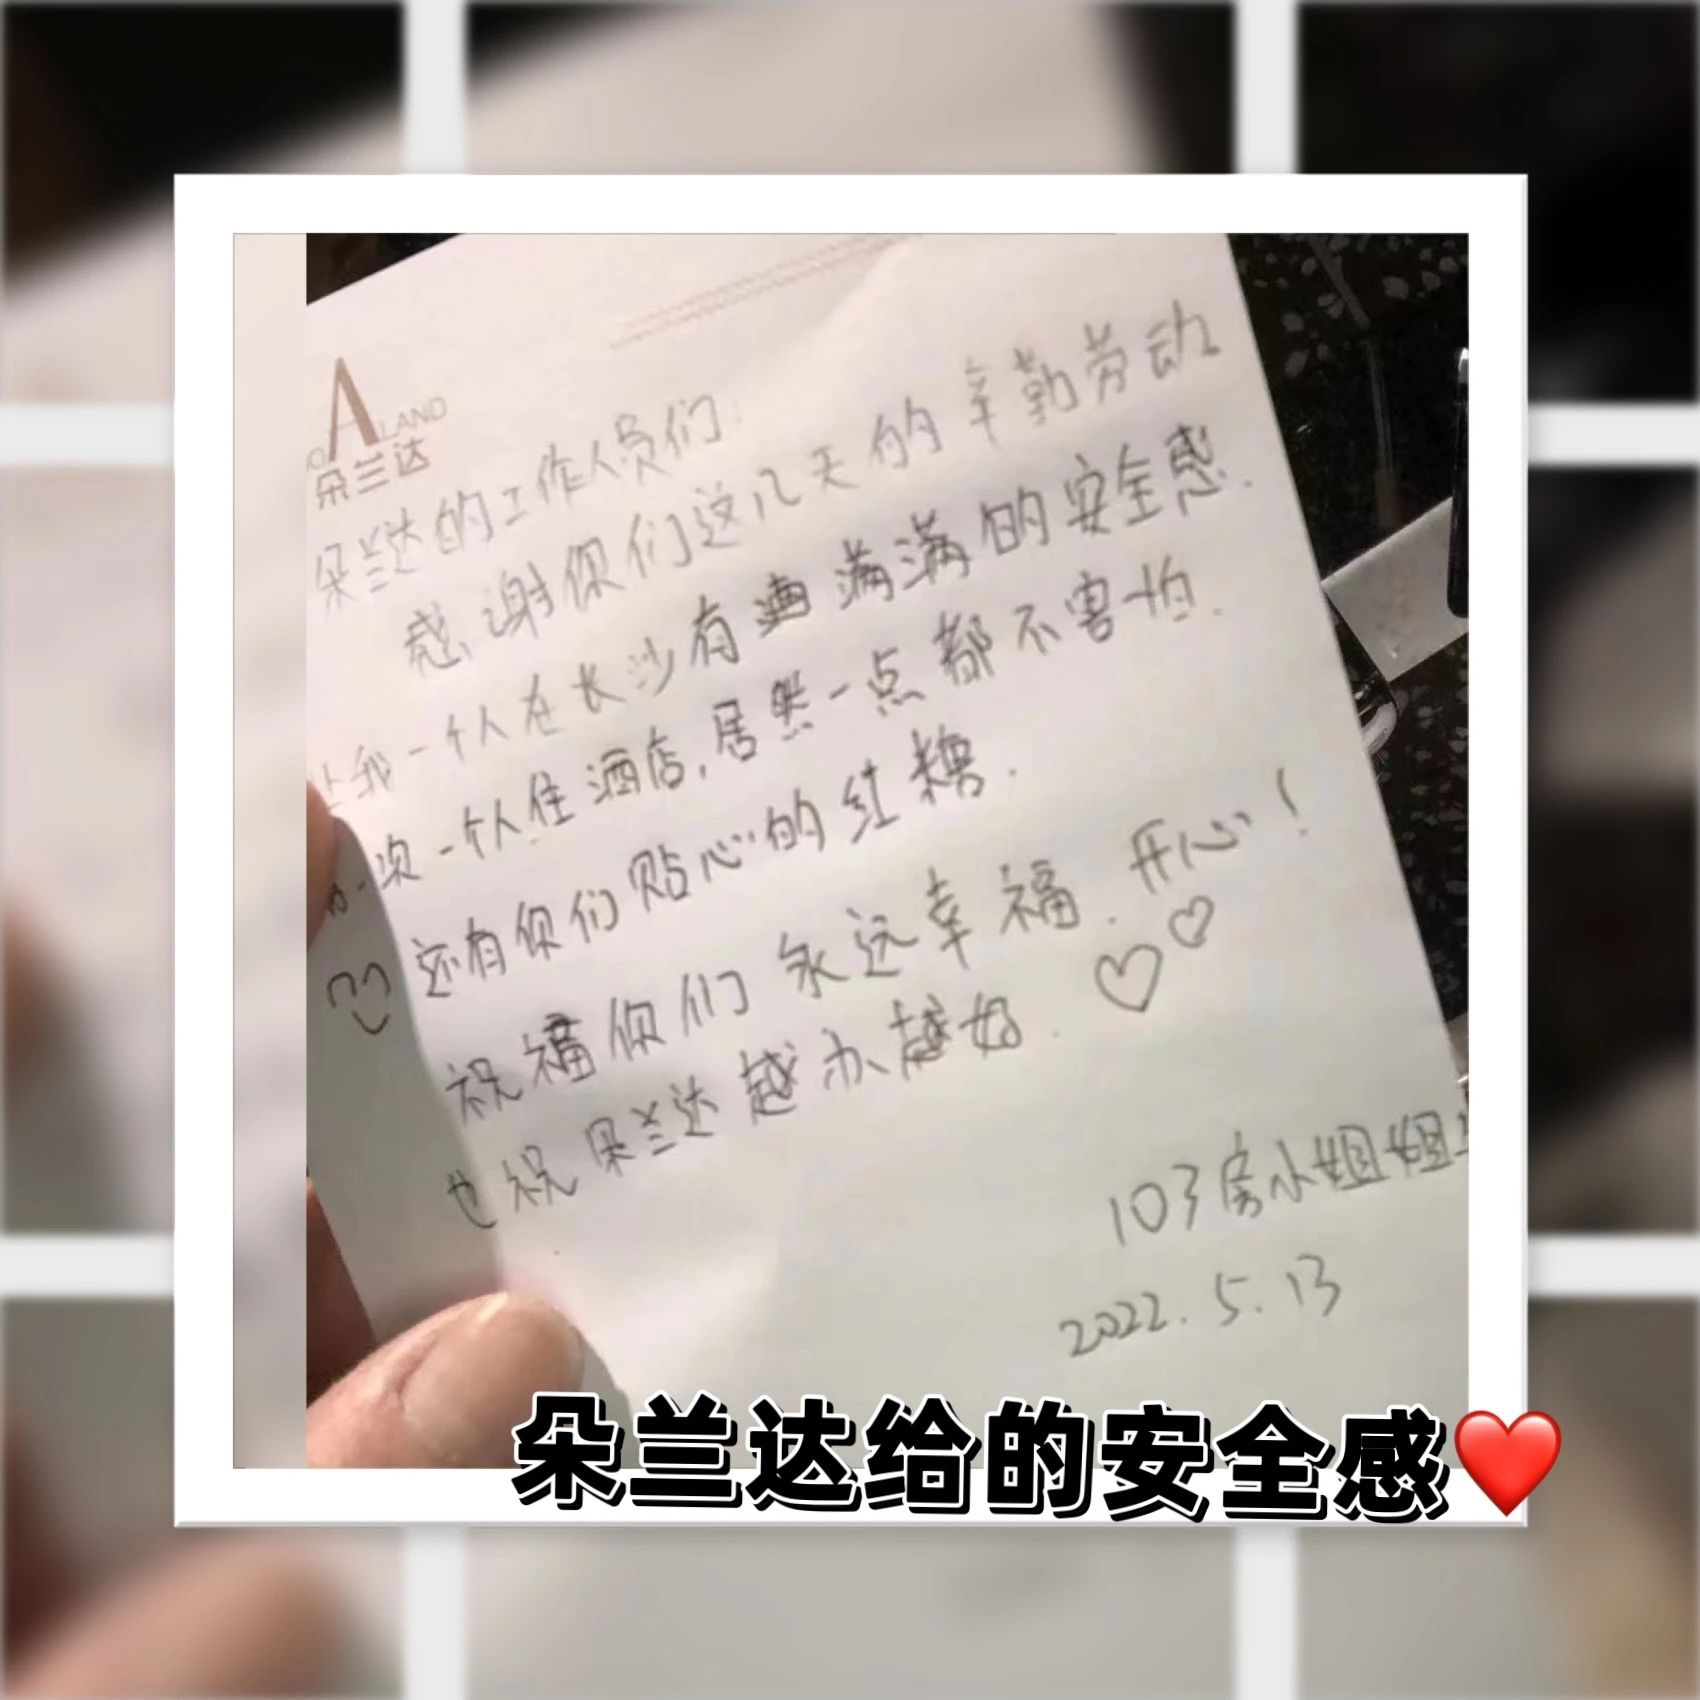 ALAND
朵兰达
朵兰达的工作人员们:
感谢你们这几天的辛勤劳动
让我一个人在长沙有满满的安全感.
一次一个人住酒店,居然一点都不害怕.
还有你们贴心的红糖.
祝福你们永远幸福.开心!
也祝朵兰达越办越好.
103房小姐姐
2022.5.13
朵兰达给的安全感❤️